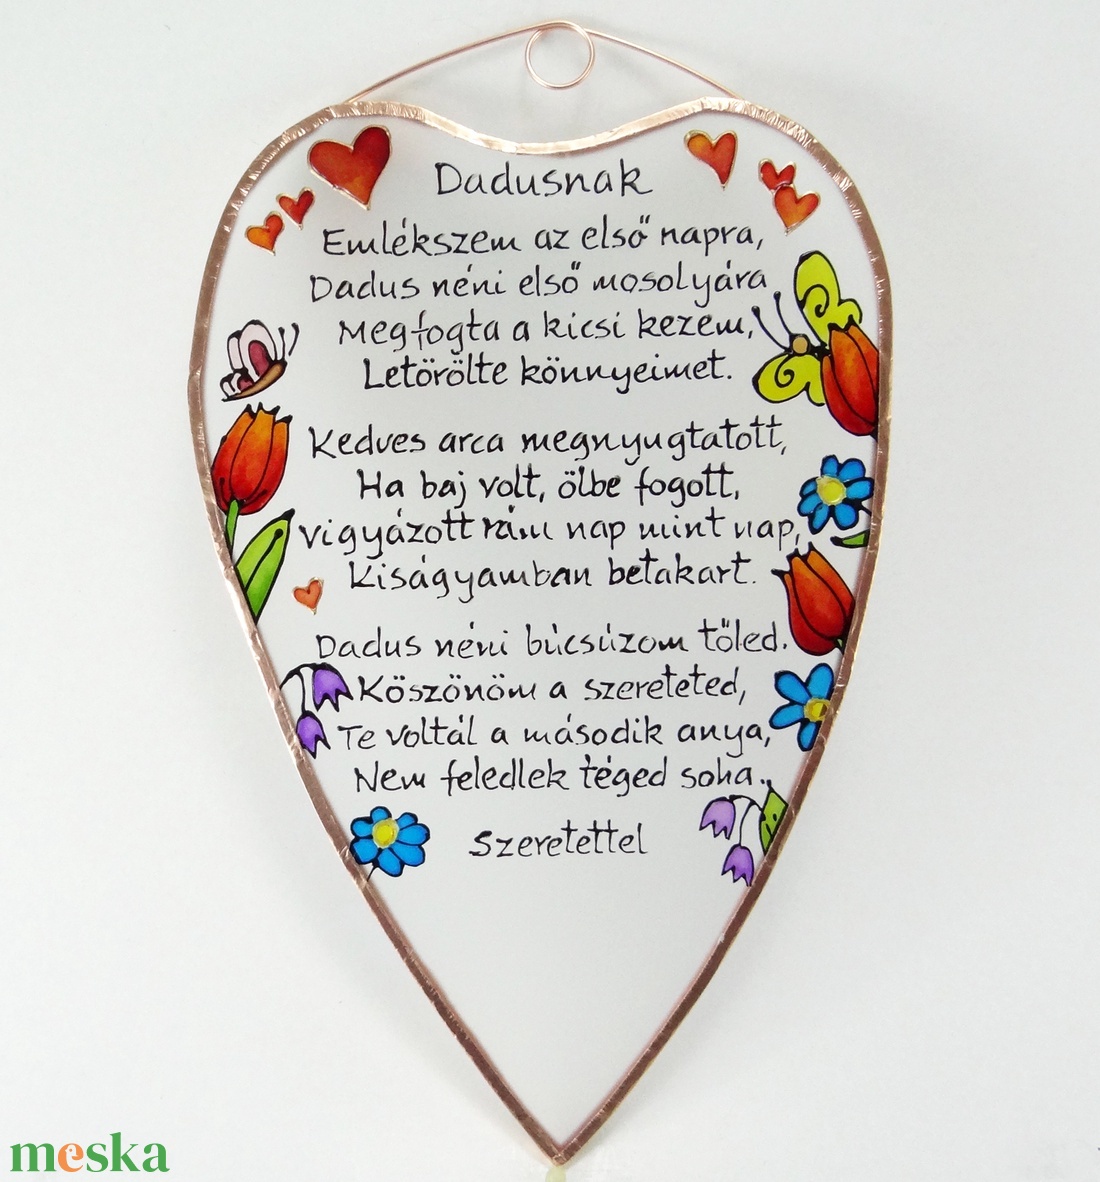 Dadusnak
Emlékszem az első napra,
Dadus néni első mosolyára
Megfogta a kicsi kezem,
Letörölte könnyeimet.
Kedves arca megnyugtatott,
Ha baj volt, ölbe fogott,
vigyázott rám nap mint nap,
Kiságyamban betakart.
Dadus néni búcsúzom tőled.
Köszönöm a szereteted,
Te voltál a második anya,
Nem feledlek téged soha..
Szeretettel
meska